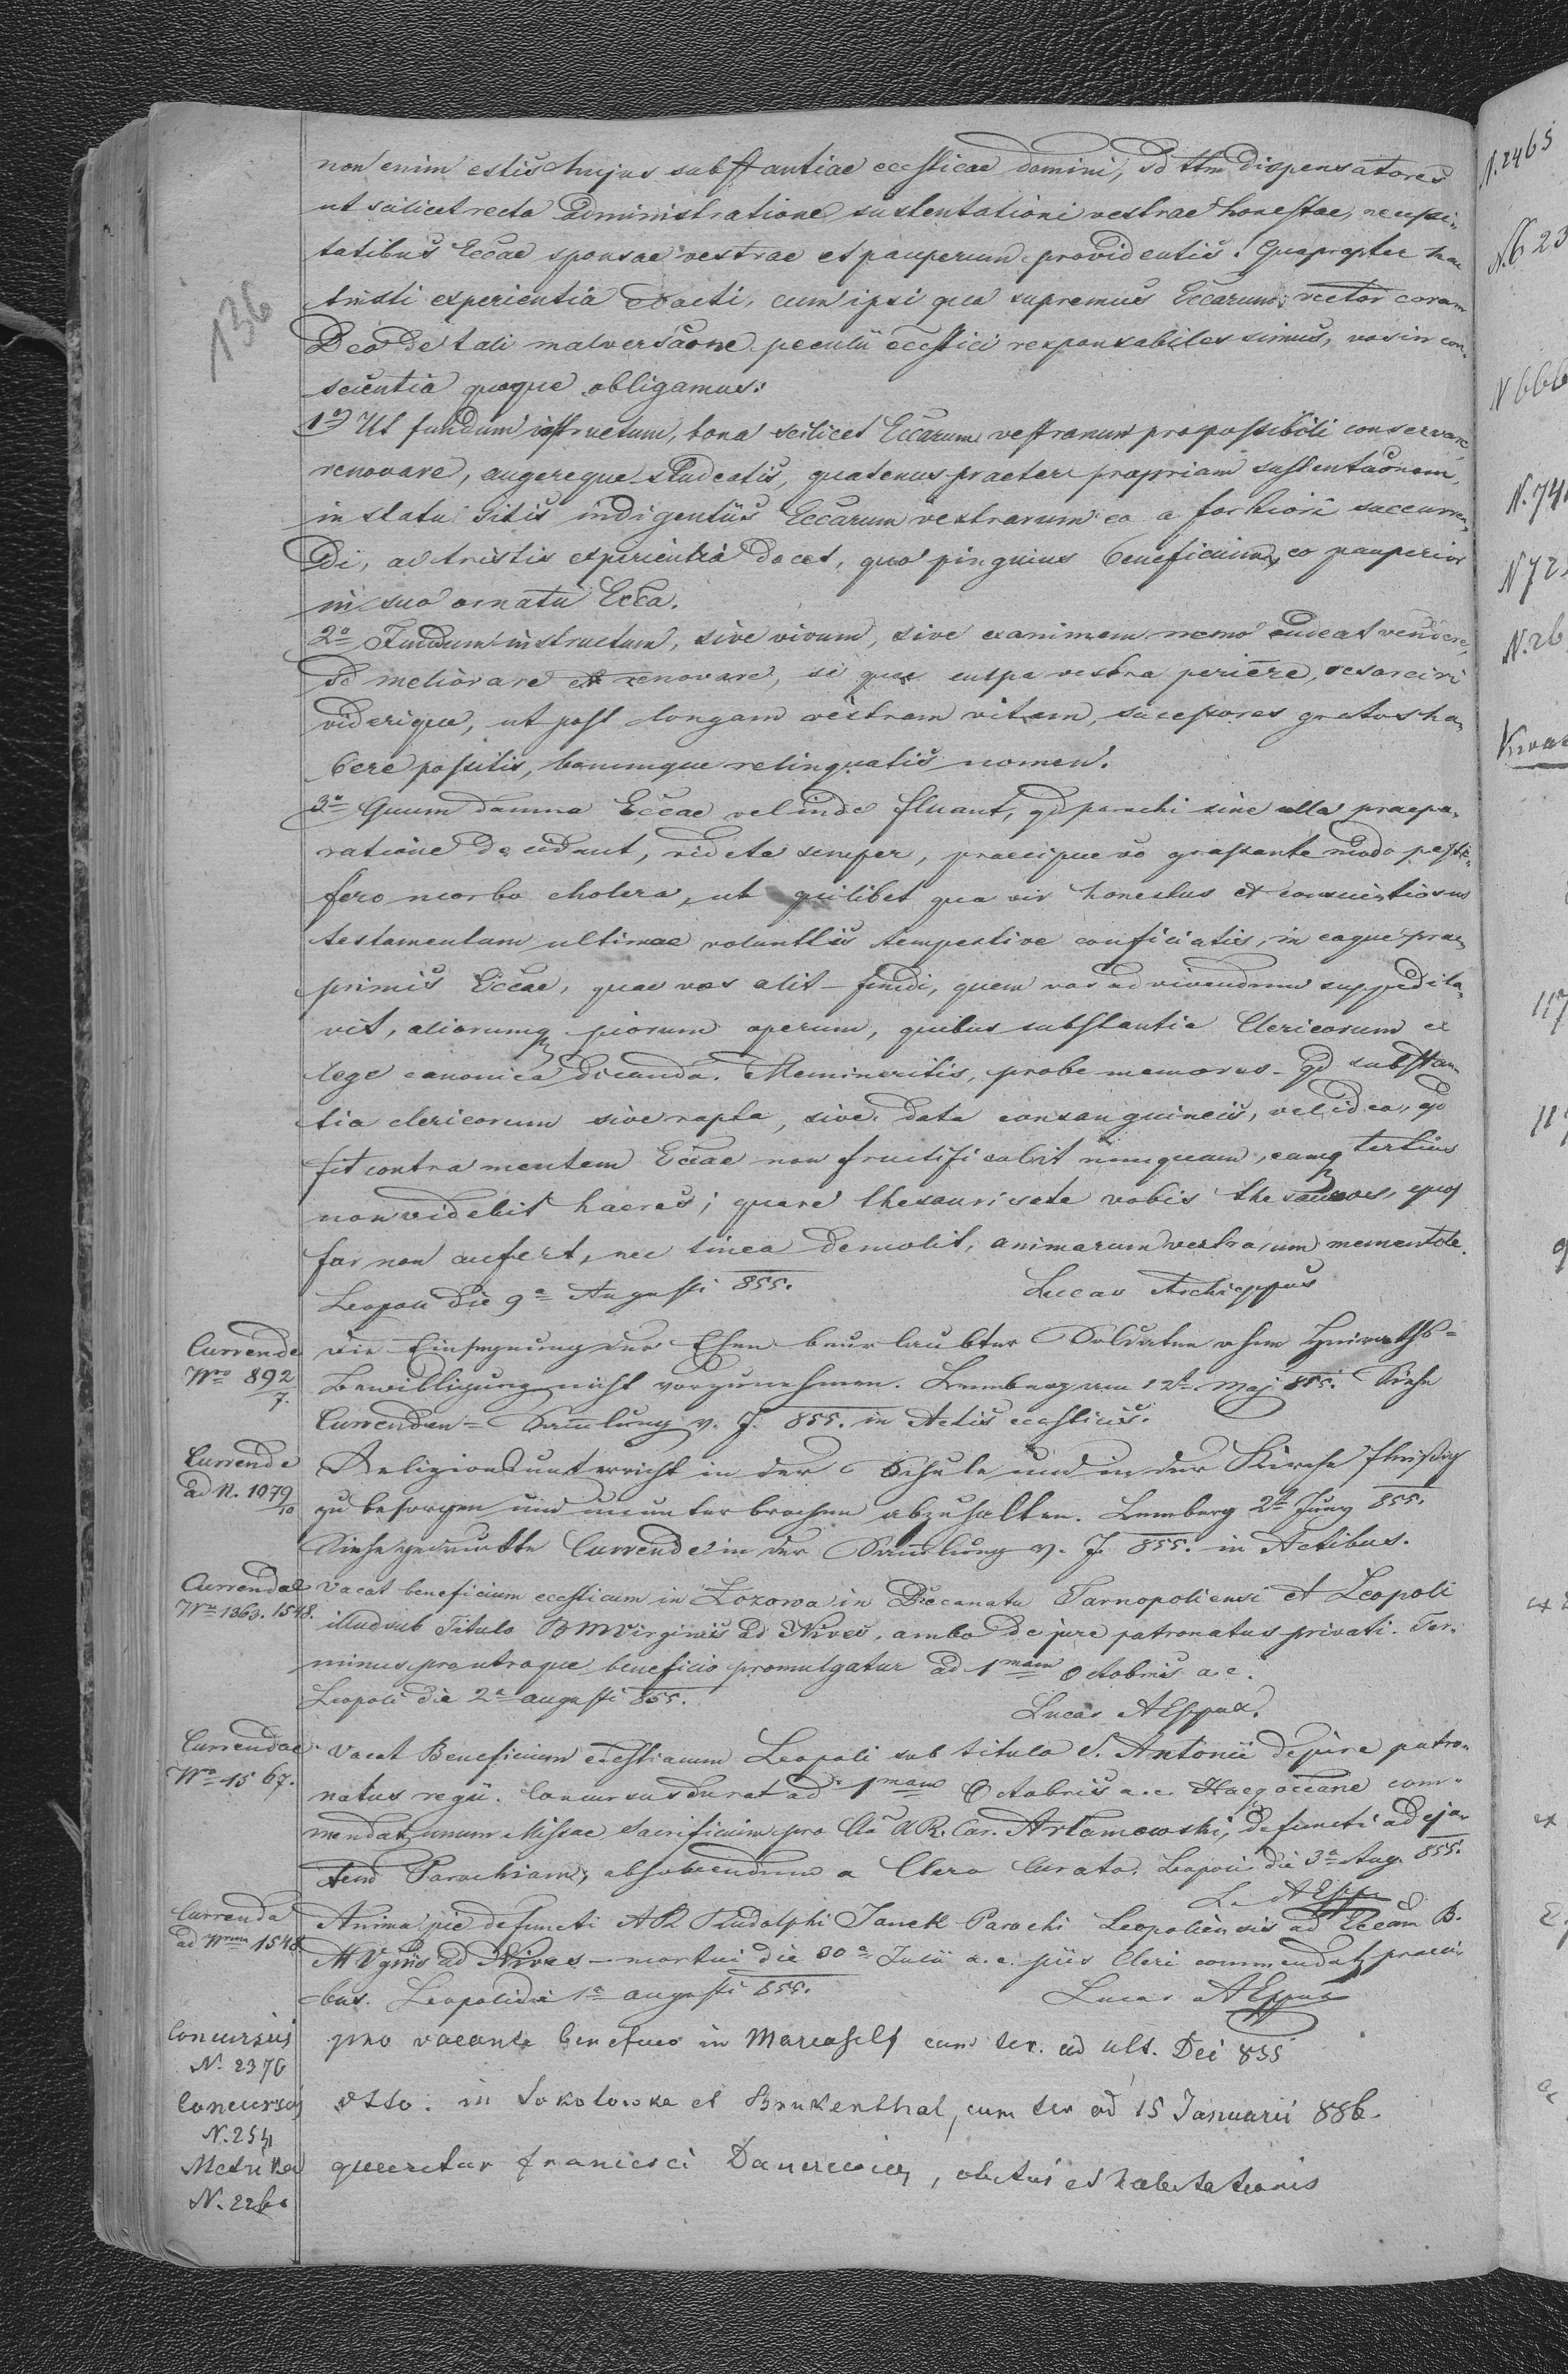 136
non enim estis hujus substantiae ecclsticae domini, sd ttm dispensatores
ut scilicet recta administratione sustentationi vestrae honestae, necessi-
tatibus Eccae sponsae vestrae et pauperum provideatis. Quapropter hac
tristi experientia edocti, cum ipsi qua supremus Eccarum rector coram
Deo de tali malversaone peculii ecclstici responsabiles simus, vos in con-
scientia quoque obligamus:
1o Ut fundum instructum, bona scilicet Eccarum vestrarum pro possibili conservare,
renovare, augereque studeatis, quatenus praeter propriam sustentaonem,
in statu sitis indigentiis Eccarum vestrarum eo a fortiori succurren-
di, ac tristis experientia docet, quo pinguius beneficium, eo pauperior
in suo ornatu Ecca.
2o Fundum instructum, sive vivum, sive exanimem nemo audeat vendere,
sd meliorare et renovare, si quae culpa vestra periere, resarciri
viderique, ut post longam vestram vitam, sucessores gratos ha-
bere possitis, bonumque relinquatis nomen.
3o Quum damna Eccae vel inde fluant, qd parochi sine ulla praepa-
ratione decidant, videte semper, praecipue vo grassante modo pesti-
fero morbo cholera, ut quilibet qua vir honestus et conscientiosus
testamentum ultimae volunttis tempestive conficiatis, in eaque prae
primis Eccae, quae vos alit - fundi, quem vos ad vivendum suppedita-
vit, aliorumq piorum operum, quibus substantia Clericorum ex
lege canonica dicanda. Memineritis, probe memores - qd substan-
tia clericorum sive rapta, sive data consanguineis, vel ideo, qd
fit contra mentem Eccae non fructificabit nunquam, eamq tertius
non videbit haeres; quare thesaurisate vobis thesauros, quos
fur non aufert, nec tinea demolit, animarum vestrarum mementote.
Leopoli die 9a Augusti 855. Lucas Archieppus
Currende
Nro 892/7.
die Einsegnung der Ehen beurlaubter Soldaten ohne Heiraths-
Bewilligung nicht vorzunehmen. Lemberg am 12t Maj 855. Siehe
Currenden-Samlung v. J. 855. in Actis ecclsticis.
Currende
ad N. 1079/10
Religionsunterricht in der Schule und in der Kirche fleißig
zu besorgen und ununterbrochen abzuhalten. Lemberg 2t Juny 855.
Siehe gedruckte Currende in der Samlung v. J. 855. in Actibus.
Currendae
Nro 1363. 1548.
Vacat beneficium ecclsticum in Łozowa in Decanatu Tarnopoliensi et Leopoli
illud sub Titulo BMVirginis ad Nives, ambo de jure patronatus privati. Ter-
minus pro utroque beneficio promulgatur ad 1mam Octobris a. c.
Leopoli die 2a augusti 855.
Lucas AEppus.
Currendae
Nro 1567.
Vacat Beneficium ecclsticum Leopoli sub titulo S. Antonii de jure patro-
natus regii. Concursus durat ad 1mam Octobris a. c. Hacq occaone com-
mendat unum Missae Sacrificium pro A. R. Car. Artamowski, defuncti ad ejus
dem Parochiam, absolvendum a Clero Curato. Leopoli die 3a Aug. 855.
L. AEppus
Currenda
ad Nrum 1548
Anima pie defuncti AR Rudolphi Janek Parochi Leopoliensis ad Eccam B.
M Vginis ad Nives - mortui die 30a Julii a. c. piis Cleri commendat preci-
bus. Leopoli die 1a augusti 855. Lucas AEppus
Concursus
N. 2376
pro vacante beneficio in Mariahilf cum ter. ad ult. Dci 855
Concursus
N. 254
dtto. in Sokolowka et Brukenthal, cum ter ad 15 Januarii 886.
Metrika
N. 226
queretur Francisci Danerewicz, obitus et habitationis
N. 2465
N. 6 23
N 666
N. 74
N 72
N. 26
117